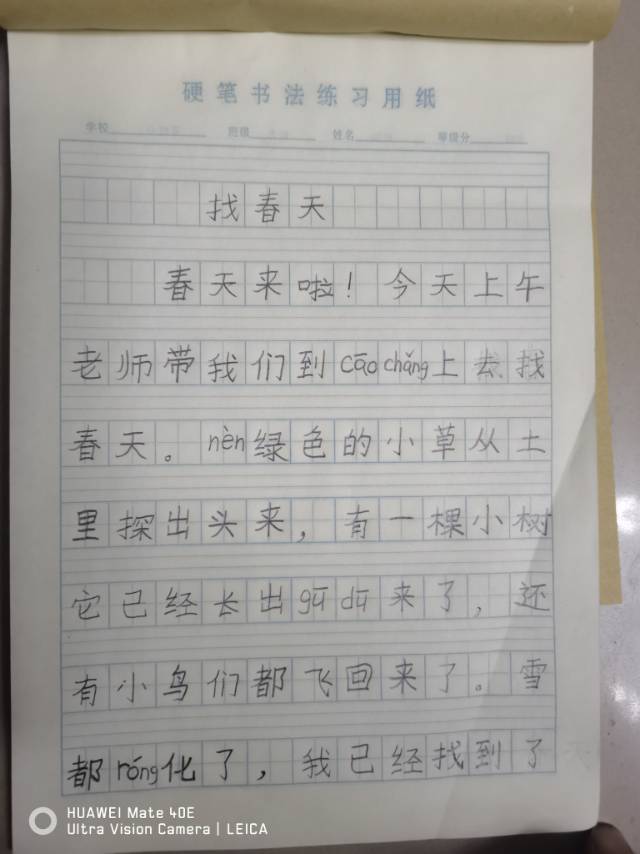 硬笔书法练习用纸
学校 班级 姓名 等级分
找春天
春天来啦！今天上午
老师带我们到cāo chǎng上去找
春天。nèn绿色的小草从土
里探出头来，有一棵小树
它已经长出gū dū来了，还
有小鸟们都飞回来了。雪
都róng化了，我已经找到了
HUAWEI Mate 40E
Ultra Vision Camera | LEICA